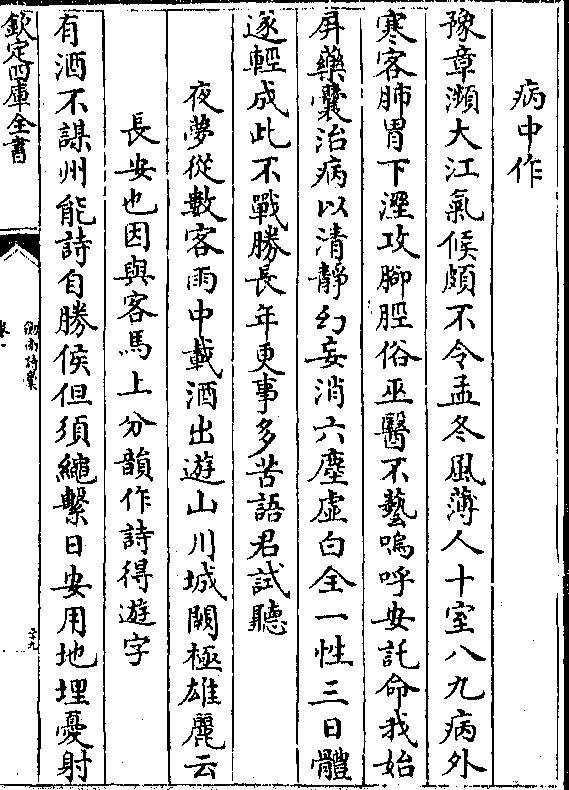 病中作
豫章瀕大江氣候頗不令孟冬風薄人十室八九病外
寒客肺胃下溼攻腳脛俗巫醫不藝嗚呼安託命我始
屏藥囊治病以清靜幻妄消六塵虛白全一性三日體
遂輕成此不戰勝長年更事多苦語君試聽
夜夢從數客雨中載酒出遊山川城闕極雄麗云
長安也因與客馬上分韻作詩得遊字
有酒不謀州能詩自勝侯但須繩繫日安用地埋憂射
欽定四庫全書
劍南詩藁
卷一
二十九